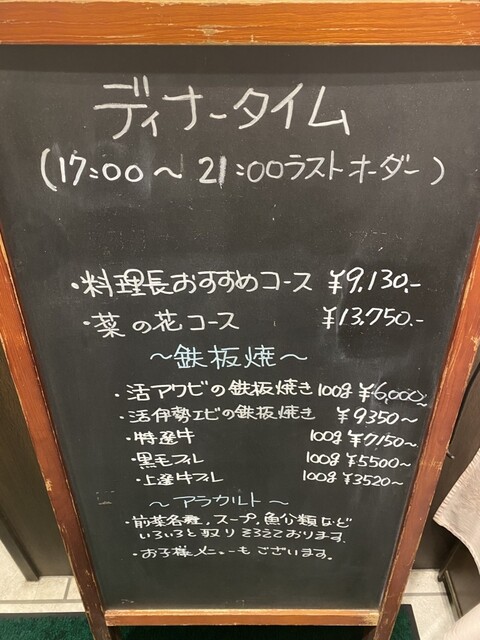 ディナータイム
(17:00～21:00ラストオーダー)
・料理長おすすめコース ¥9,130.-
・菜の花コース ¥13,750.-
～鉄板焼～
・活アワビの鉄板焼き 100g ¥6,000～
・活伊勢エビの鉄板焼き ¥9350～
・特産牛 100g ¥7150～
・黒毛フィレ 100g ¥5500～
・上産牛フィレ 100g ¥3520～
～アラカルト～
・前菜各種,スープ,魚介類など
いろいろと取りそろえております.
・お子様メニューもございます。